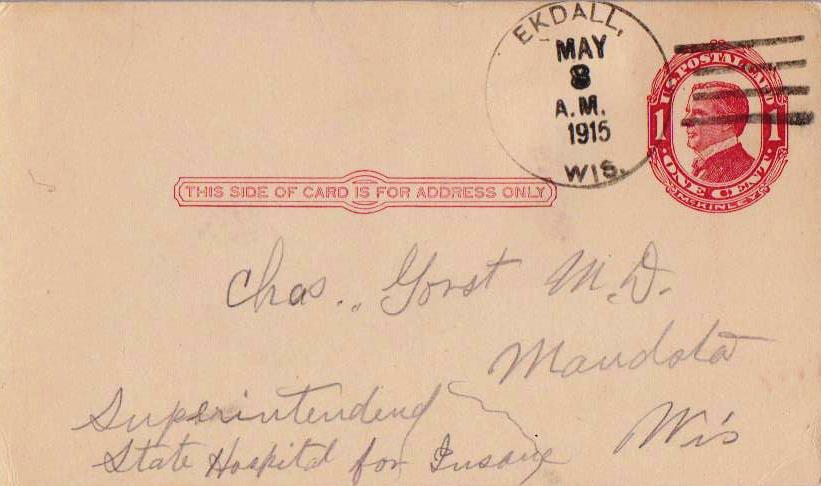 EKDALL,
MAY
8
A.M.
1915
WIS.
U.S. POSTAL CARD
1 1
· ONE CENT. ·
McKINLEY
THIS SIDE OF CARD IS FOR ADDRESS ONLY
Chas.. Gorst M.D.
Mandota
Superintendend
Wis
State Hospital for Insane